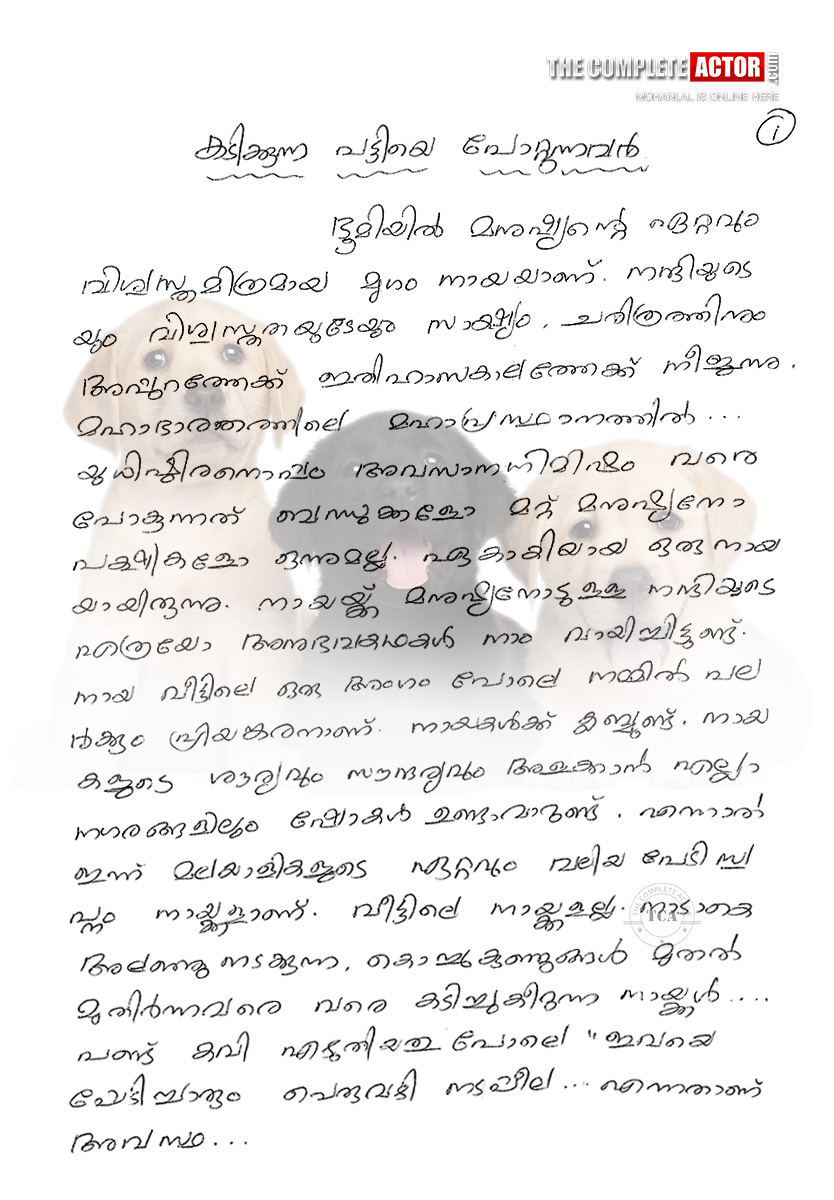 THE COMPLETE ACTOR .com
MOHANLAL IS ONLINE HERE
i
കടിക്കുന്ന പട്ടിയെ പോറ്റുന്നവൻ
ഭൂമിയിൽ മനുഷ്യന്റെ ഏറ്റവും
വിശ്വസ്തമിത്രമായ മൃഗം നായയാണ്. നന്ദിയുടെ
യും വിശ്വസ്തതയുടേയും സാക്ഷ്യം, ചരിത്രത്തിനും
അപ്പുറത്തേക്ക് ഇതിഹാസകാലത്തേക്ക് നീളുന്നു.
മഹാഭാരതത്തിലെ മഹാപ്രസ്ഥാനത്തിൽ...
യുധിഷ്ഠിരനൊപ്പം അവസാനനിമിഷം വരെ
പോകുന്നത് ബന്ധുക്കളോ മറ്റ് മനുഷ്യനോ
പക്ഷികളോ ഒന്നുമല്ല. ഏകാകിയായ ഒരു നായ
യായിരുന്നു. നായയ്ക്ക് മനുഷ്യനോടുള്ള നന്ദിയുടെ
എത്രയോ അനുഭവകഥകൾ നാം വായിച്ചിട്ടുണ്ട്.
നായ വീട്ടിലെ ഒരു അംഗം പോലെ നമ്മിൽ പല
ർക്കും പ്രിയങ്കരനാണ്. നായകൾക്ക് ക്ലബ്ബുണ്ട്. നായ
കളുടെ ശൗര്യവും സൗന്ദര്യവും അളക്കാൻ എല്ലാ
നഗരങ്ങളിലും ഷോകൾ ഉണ്ടാവാറുണ്ട്. എന്നാൽ
ഇന്ന് മലയാളികളുടെ ഏറ്റവും വലിയ പേടിസ്വ
പ്നം നായ്ക്കളാണ്. വീട്ടിലെ നായ്ക്കളല്ല. നാടാകെ
അലഞ്ഞു നടക്കുന്ന, കൊച്ചുകുഞ്ഞുങ്ങൾ മുതൽ
മുതിർന്നവരെ വരെ കടിച്ചുകീറുന്ന നായ്ക്കൾ....
പണ്ട് കവി എഴുതിയതു പോലെ "ഇവയെ
പേടിച്ചാരും പെരുവഴി നടപ്പീല... എന്നതാണ്
അവസ്ഥ...
THE COMPLETE ACTOR
TCA